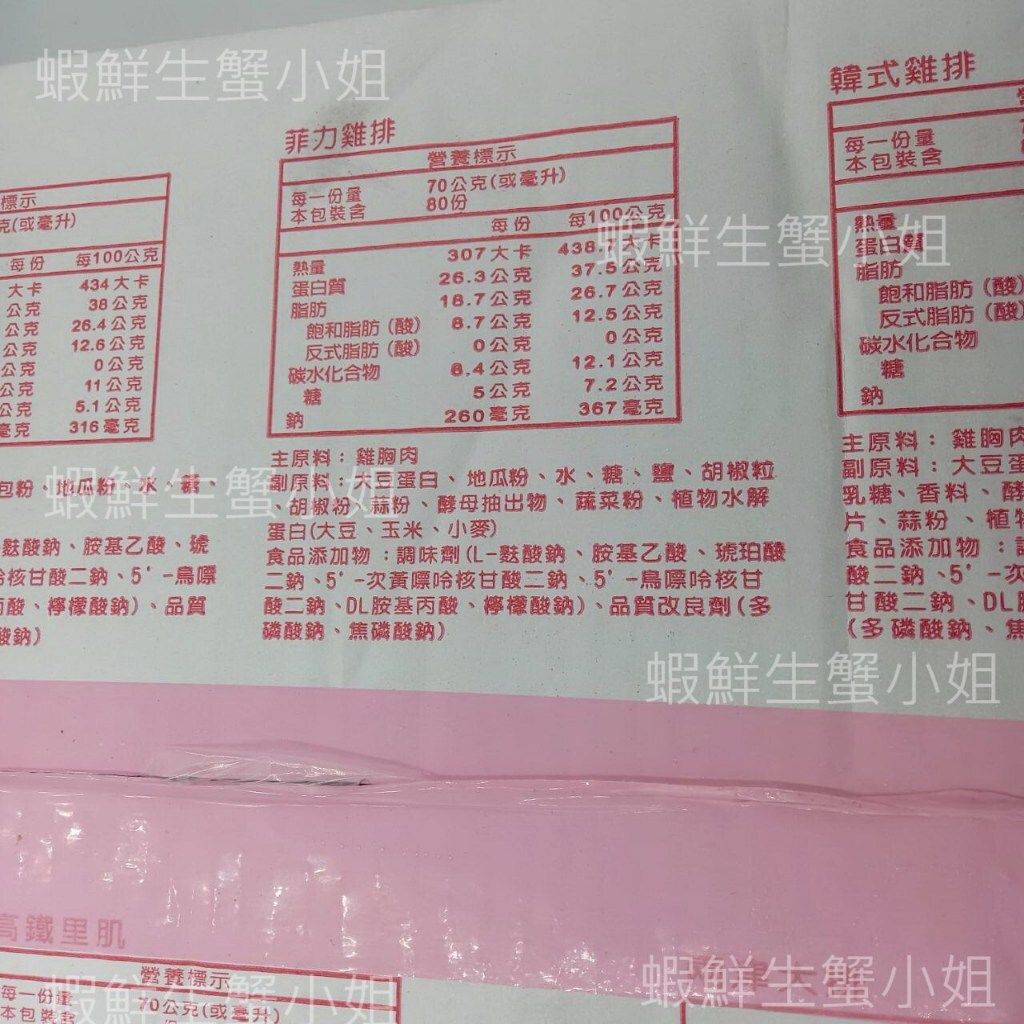 蝦鮮生蟹小姐
標示
克(或毫升)
每份 每100公克
大卡 434大卡
公克 38公克
公克 26.4公克
公克 12.6公克
公克 0公克
公克 11公克
公克 5.1公克
毫克 316毫克
包粉、地瓜粉、水、糖、
麩酸鈉、胺基乙酸、琥
呤核甘酸二鈉、5'-鳥嘌
丙酸、檸檬酸鈉)、品質
酸鈉)
菲力雞排
營養標示
每一份量 70公克(或毫升)
本包裝含 80份
每份 每100公克
熱量 307大卡 438.7大卡
蛋白質 26.3公克 37.5公克
脂肪 18.7公克 26.7公克
飽和脂肪(酸) 8.7公克 12.5公克
反式脂肪(酸) 0公克 0公克
碳水化合物 8.4公克 12.1公克
糖 5公克 7.2公克
鈉 260毫克 367毫克
主原料：雞胸肉
副原料：大豆蛋白、地瓜粉、水、糖、鹽、胡椒粒
、胡椒粉、蒜粉、酵母抽出物、蔬菜粉、植物水解
蛋白(大豆、玉米、小麥)
食品添加物：調味劑(L-麩酸鈉、胺基乙酸、琥珀酸
二鈉、5'-次黃嘌呤核甘酸二鈉、5'-鳥嘌呤核甘
酸二鈉、DL胺基丙酸、檸檬酸鈉)、品質改良劑(多
磷酸鈉、焦磷酸鈉)
韓式雞排
每一份量
本包裝含
熱量
蛋白質
脂肪
飽和脂肪(酸)
反式脂肪(酸)
碳水化合物
糖
鈉
主原料：雞胸肉
副原料：大豆蛋
乳糖、香料、酵
片、蒜粉、植物
食品添加物：
酸二鈉、5'-次
甘酸二鈉、DL
(多磷酸鈉、焦
蝦鮮生蟹小姐
蝦鮮生蟹小姐
蝦鮮生蟹小姐
高鐵里肌
營養標示
每一份量 70公克(或毫升)
本包裝含
蝦鮮生蟹小姐
蝦鮮生蟹小姐